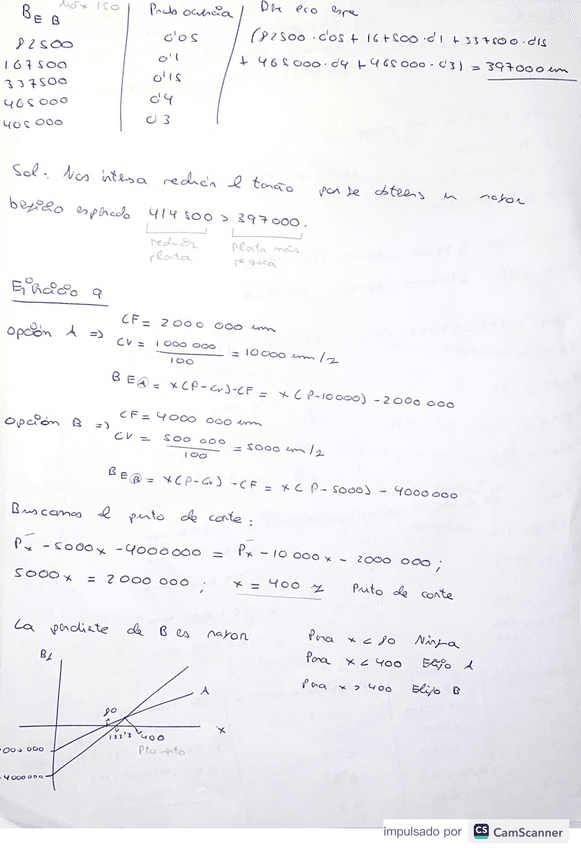 BE B    Máx 150    Prob ocurrencia    Dte eco espe
82500    0'05    (82500 · 0'05 + 167500 · 0'1 + 337500 · 0'15
167500    0'1    + 465000 · 0'4 + 465000 · 0'3) = 397000 um
337500    0'15
465000    0'4
465000    0'3
Sol: Nos intesa reducir el           se obtiene un mayor
               414500 > 397000.
reducir    planta más
planta    pequeña
Ejercicio 9
Opción A => CF = 2000 000 um
CV = 1000 000 / 100 = 10000 um/z
BE Ⓐ = x(P-Cv)-CF = x(P-10000) - 2000 000
Opción B => CF = 4000 000 um
CV = 500 000 / 100 = 5000 um/z
BE Ⓑ = x(P-Cv) - CF = x(P-5000) - 4000000
Buscamos el punto de corte:
Px - 5000x - 4000000 = Px - 10 000x - 2000 000;
5000x = 2000 000; x = 400 z Punto de corte
La pendiente de B es mayor
Para x < 80 Ninguna
Para x < 400 Elijo A
Para x > 400 Elijo B
Bz
A
80
133'3    400    x
Pto corte
000 000
-4000000
impulsado por CS CamScanner